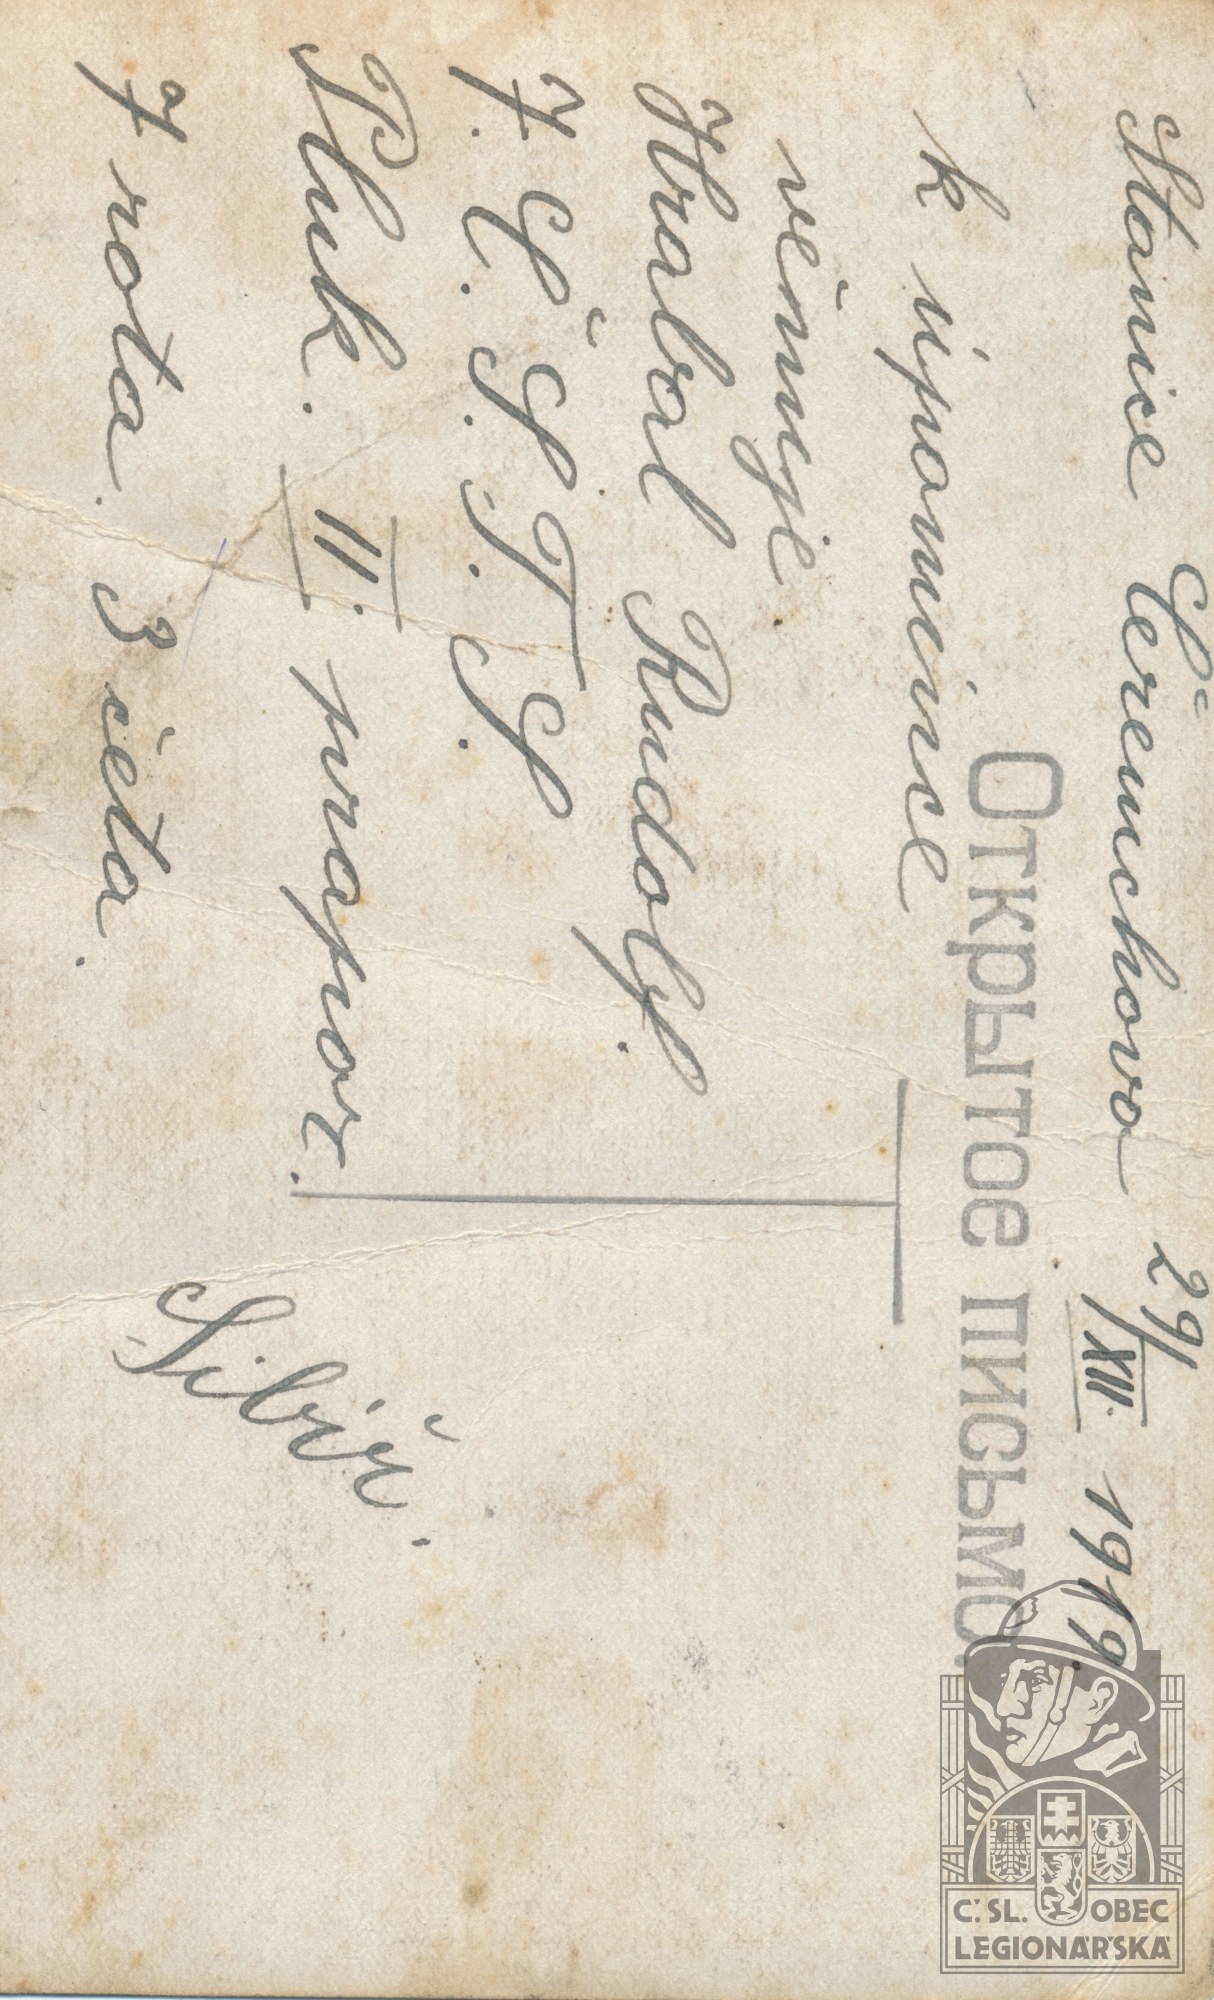 Stanice Čeremchovo 29/XII. 1919.
Открытое письмо.
k úpomince
věnuje
Hrabal Rudolf.
7. Č. S. T. S.
Pluk. II. prapor.
7 rota. 3 četa.
Sibiř.
Č. SL. OBEC
LEGIONÁŘSKÁ